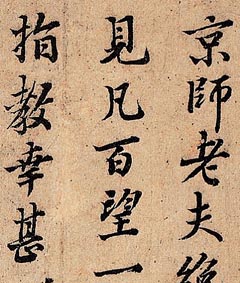 京師老夫絕
見凡百望一
指教幸甚